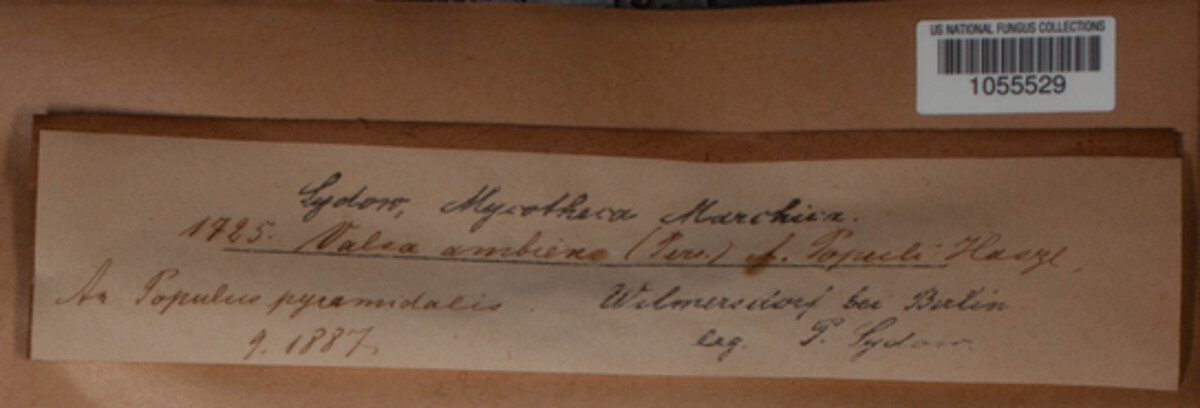 US NATIONAL FUNGUS COLLECTIONS
1055529
Sydow, Mycotheca Marchica.
1725. Valsa ambiens (Pers.) f. Populi Hazsl.
An Populus pyramidalis. Wilmersdorf bei Berlin
9. 1887. leg. P. Sydow.